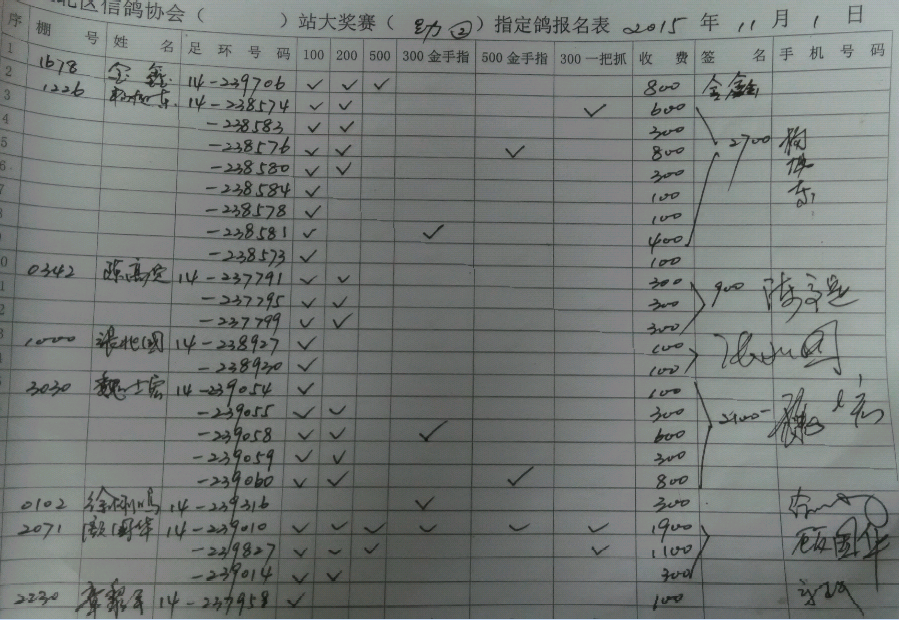 北区信鸽协会（ ）站大奖赛（ 助②）指定鸽报名表 2015 年 11 月 1 日
序 棚 号 姓 名 足 环 号 码 100 200 500 300金手指 500金手指 300一把抓 收 费 签 名 手 机 号 码
1 1678 金鑫 14-239706 ✓ ✓ ✓ 800 金鑫
2 1226 14-238574 ✓ ✓ ✓ 600
3 -238583 ✓ ✓ 300
4 -238576 ✓ ✓ ✓ 800 2700
5 -238580 ✓ ✓ 300
6 -238584 ✓ 100
7 -238578 ✓ 100
-238581 ✓ ✓ 400
-238573 ✓ 100
0 0342 14-237791 ✓ ✓ 300 900
1 -237795 ✓ ✓ 300
2 -237799 ✓ ✓ 300
3 1000 张北国 14-238927 ✓ 100
-238930 ✓ 100
3030 魏士宏 14-239054 ✓ 100
-239055 ✓ ✓ 300 2100-
-239058 ✓ ✓ ✓ 600
-239059 ✓ ✓ 300
-239060 ✓ ✓ ✓ 800
0102 14-239316 ✓ 300
2071 顾国华 14-239010 ✓ ✓ ✓ ✓ ✓ ✓ 1900 顾国华
-239827 ✓ ✓ ✓ ✓ 1100
-239014 ✓ ✓ 300
2230 14-237958 ✓ 100